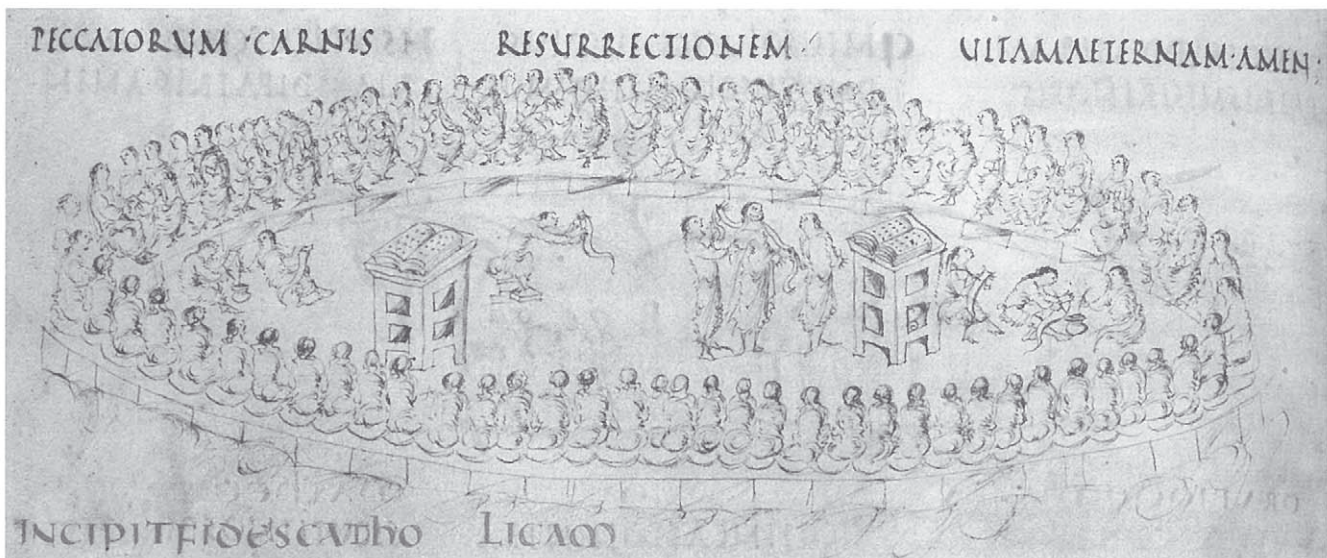 PECCATORUM · CARNIS RESURRECTIONEM · UITAMAETERNAM · AMEN :
INCIPIT FIDES CATHO LICAM